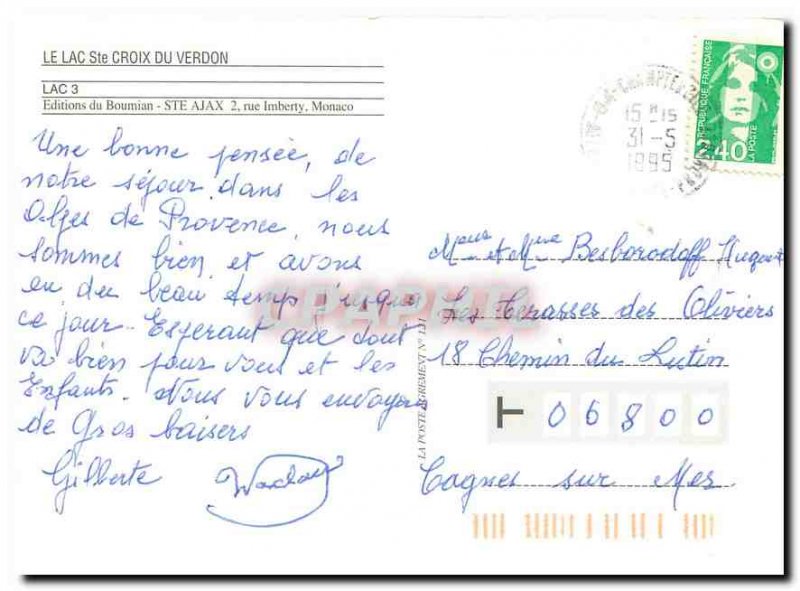 LE LAC Ste CROIX DU VERDON
LAC 3
Editions du Boumian - STE AJAX 2, rue Imberty, Monaco
Une bonne pensée, de
notre séjour dans les
Alpes de Provence, nous
sommes bien et avons
eu du beau temp jusque
ce jour. Esperant que tout
va bien pour vous et les
Enfants. Nous vous envoyons
de Gros baisers
Gilberte
15 H 15
31-5
1995
REPUBLIQUE FRANÇAISE
LA POSTE
2,40
LA POSTE AGREMENT N° 131
et Mme Besborodoff Hugues
Les Terasses des Oliviers
18 Chemin du Lutin
T 06800
Cagnes sur Mer